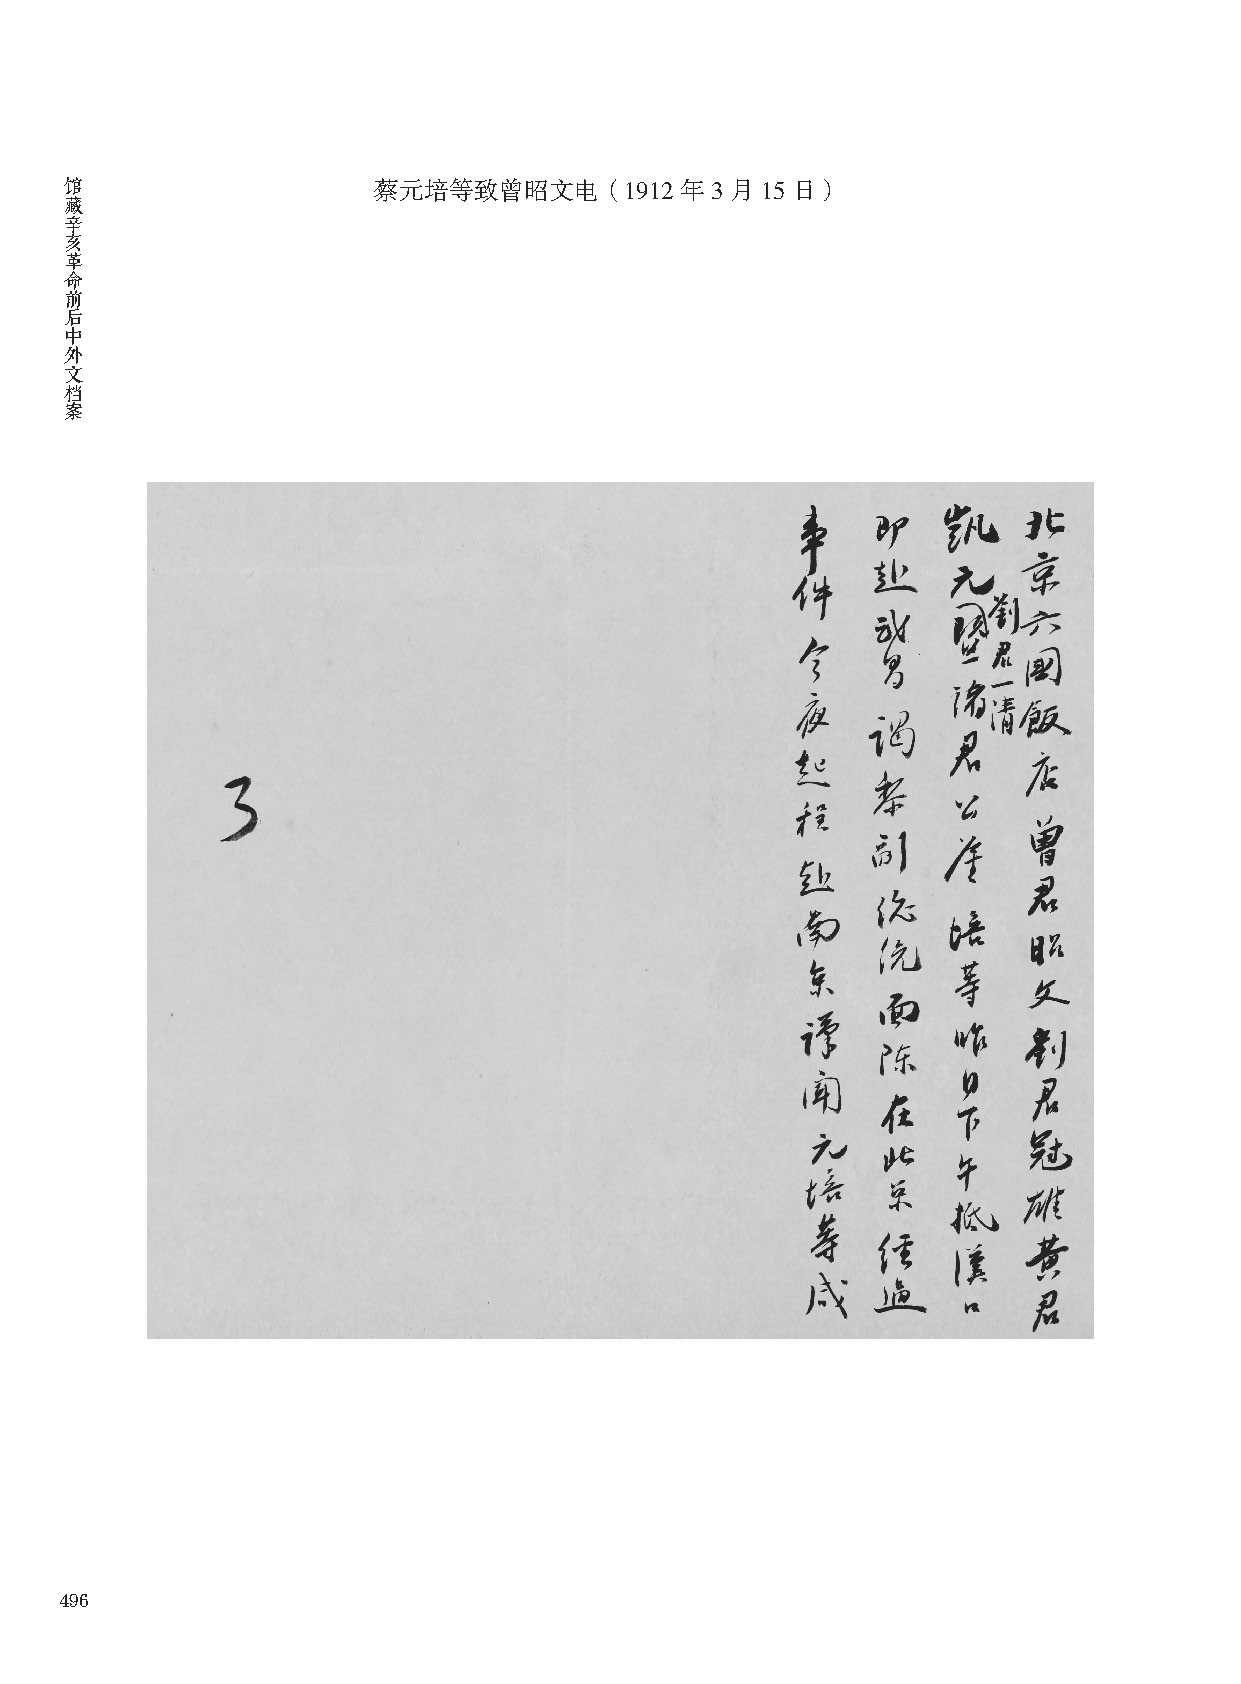 蔡元培等致曾昭文电（1912年3月15日）
馆藏辛亥革命前后中外文档案
北京六國飯店曾君昭文劉君冠雄黄君
凱元劉君一清暨諸君公鉴培等昨日下午抵漢口
即赴武昌谒黎副總統面陈在北京經過
事件今夜起程赴南京謹聞元培等咸
3
496